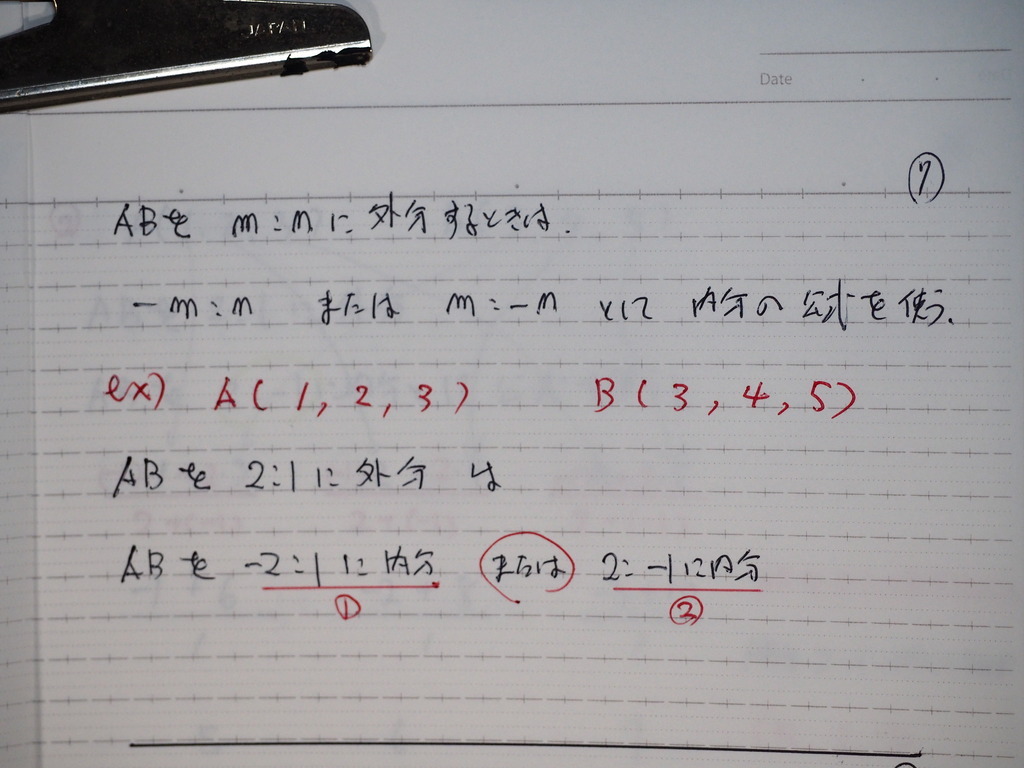 JAPAN
Date
⑦
ABを m:nに外分するときは.
-m:n または m:-n として 内分の公式を使う.
ex) A(1,2,3) B(3,4,5)
ABを 2:1に外分は
ABを -2:1に内分 または 2:-1に内分
① ②